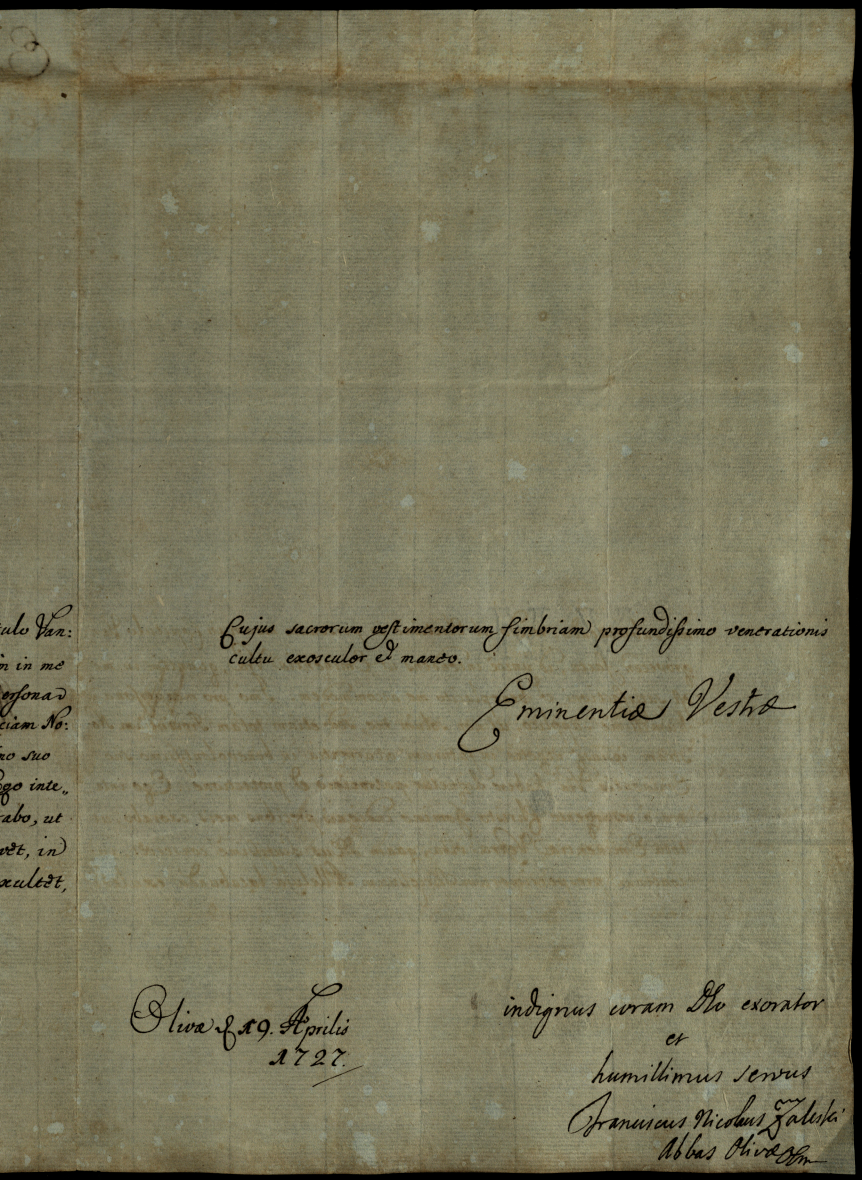 tulo Van:
in me
personad
ciam No:
suo
Ego inte„
rabo, ut
vet, in
exultet,
Cujus sacrorum vestimentorum fimbriam profundissimo venerationis
cultu exosculor et maneo.
Eminentiæ Vestræ
Olivæ d. 19. Aprilis
1727.
indignus coram Dño exorator
et
humillimus servus
Franciscus Nicolaus Zaleski
Abbas Olivæ